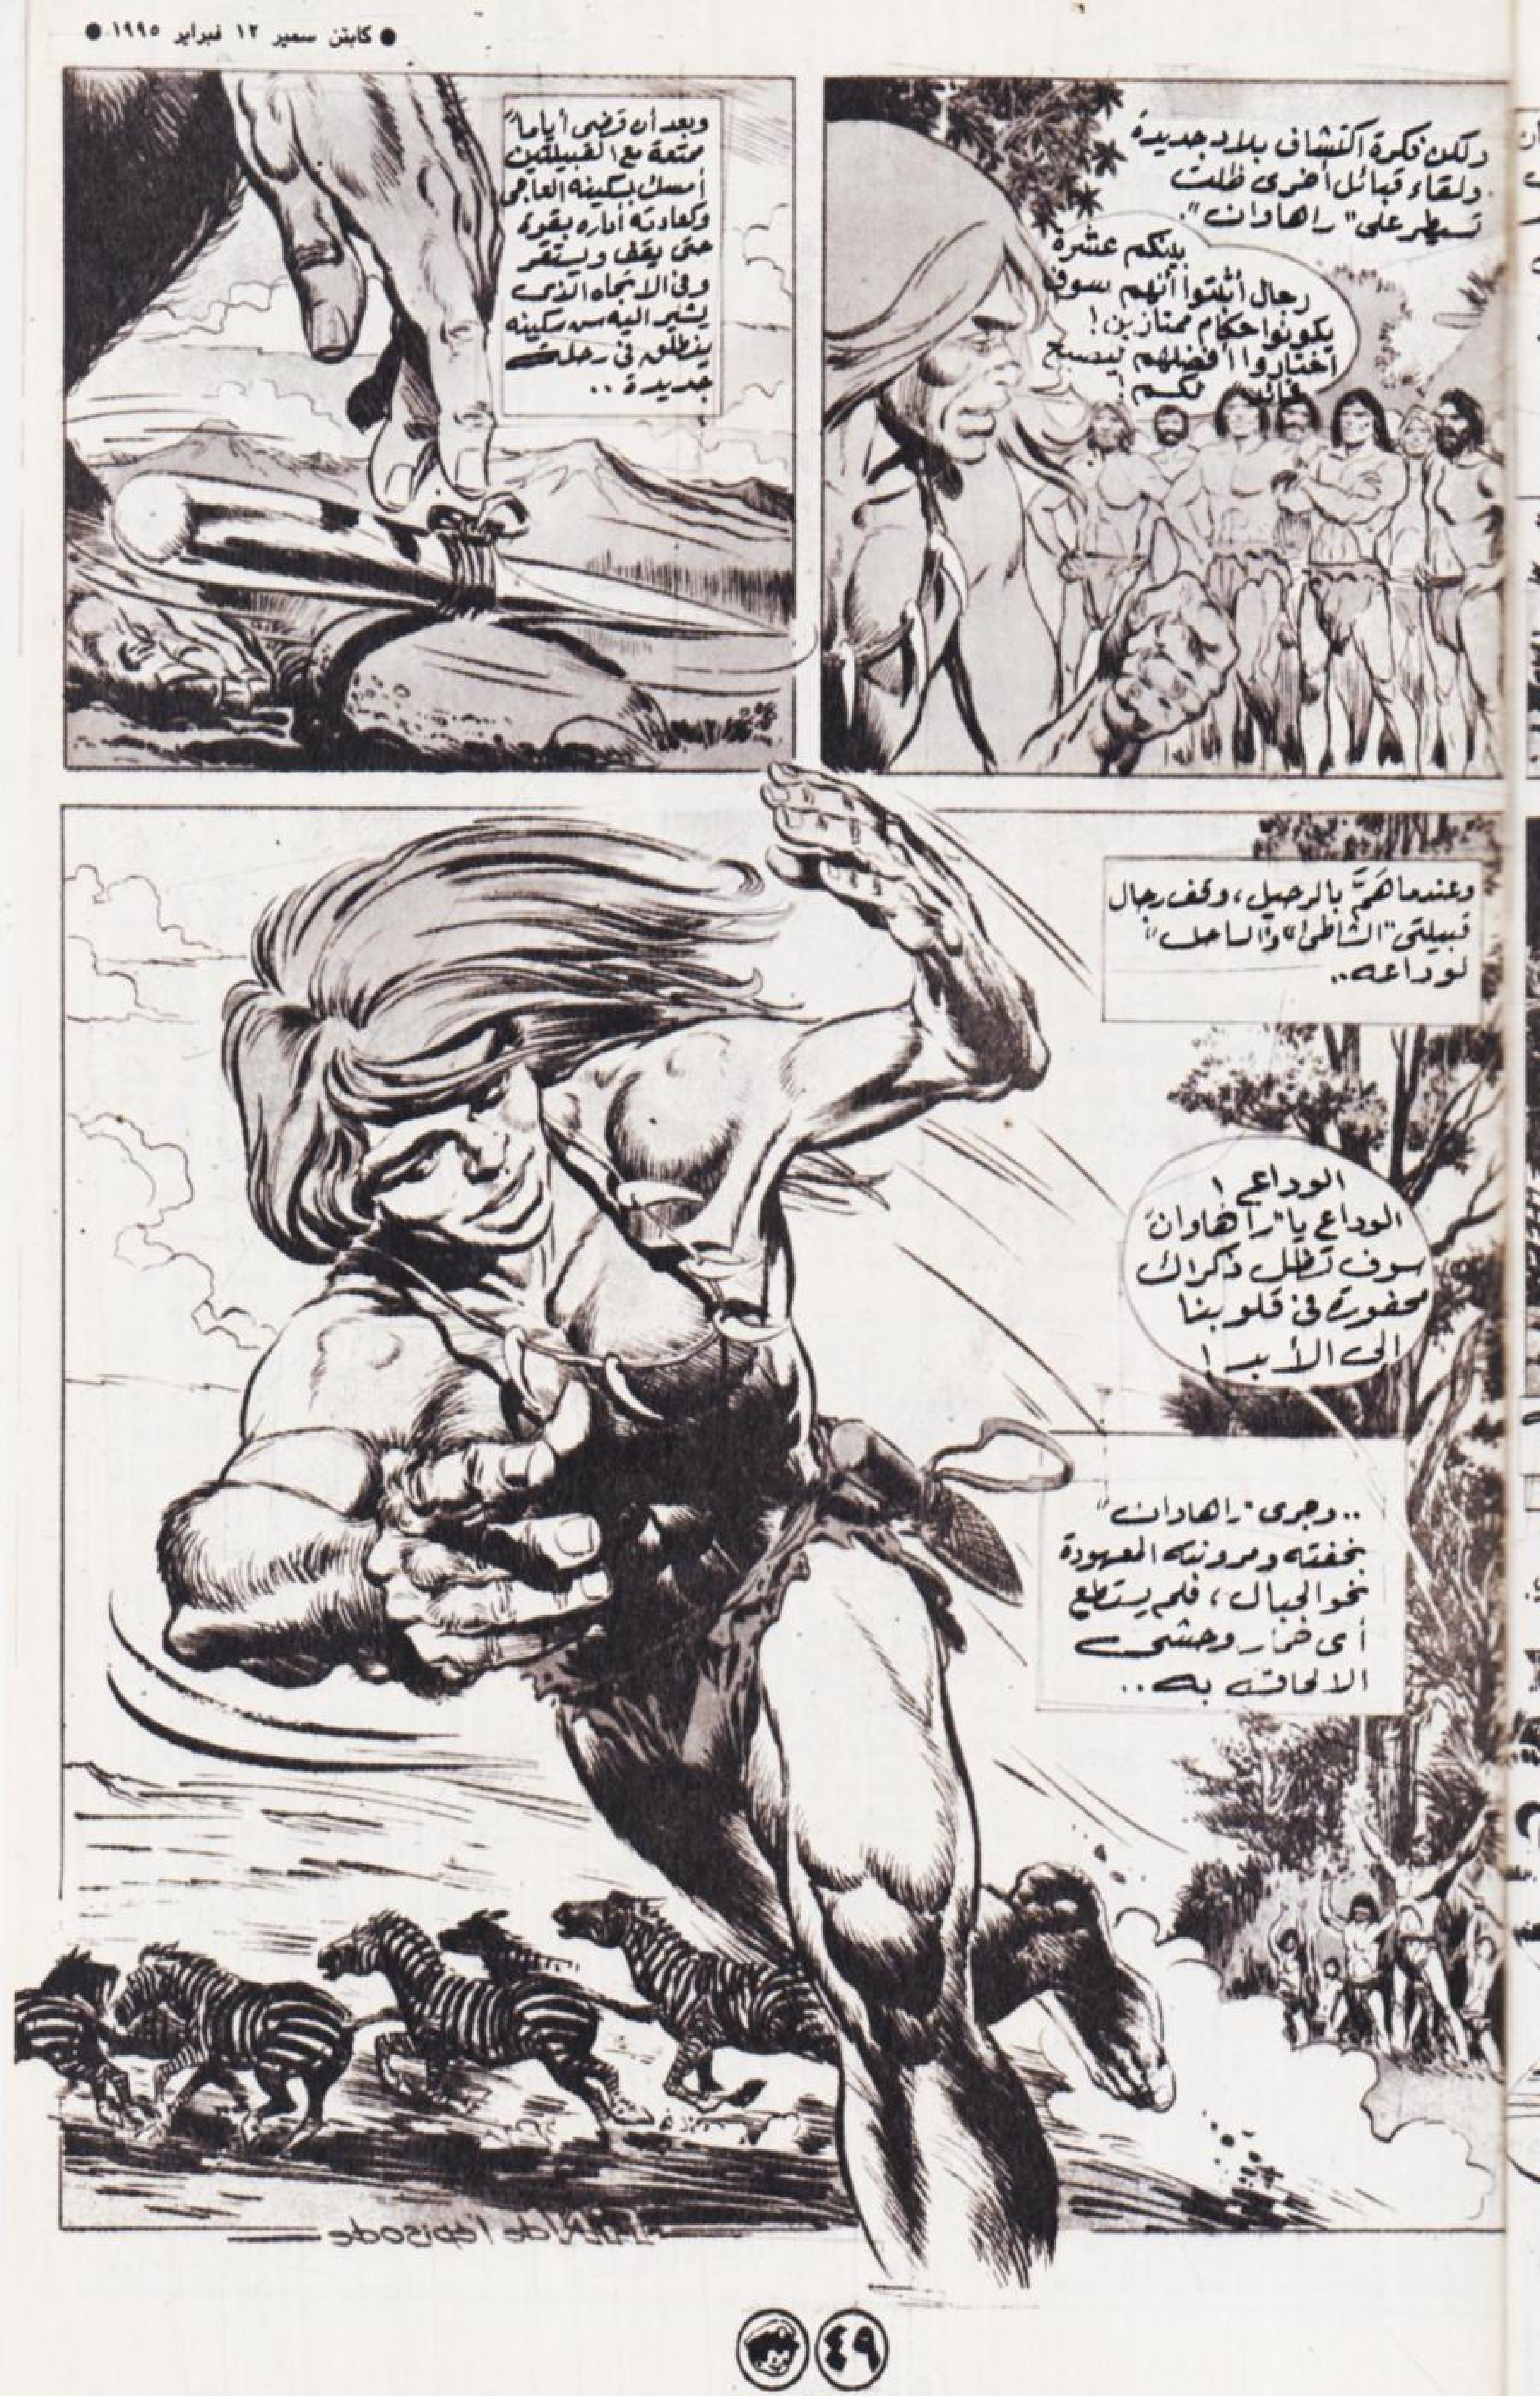 ● كابتن سمير ١٢ فبراير ١٩٩٥ ●
ولكن فكرة اكتشاف بلاد جديدة
ولقاء قبائل أخرى ظلت
تسيطر على "راهاوان".
بينكم عشرة
رجال أثبتوا أنهم سوف
يكونوا حكام ممتازين!
اختاروا أفضلهم ليصبح
لكم!
وبعد أن قضى أياماً
ممتعة مع القبيلتين
أمسك بسكينه العاجى
وكعادته أداره بقوة
حتى يقف ويستقر
وفى الاتجاه الذى
يشير اليه سن سكينه
ينطلق فى رحلة
جديدة..
وعندما هَمَّ بالرحيل، وقف رجال
قبيلتى "الشاطئ" و"الساحل"
لوداعه..
الوداع!
الوداع يا "راهاوان"
سوف تظل ذكراك
محفورة فى قلوبنا
الى الأبد!
.. وجرى "راهاوان"
بخفته ومرونته المعهودة
نحو الجبال، فلم يستطع
أى حمار وحشى
الالحاق به..
de l'épisode
٤٩